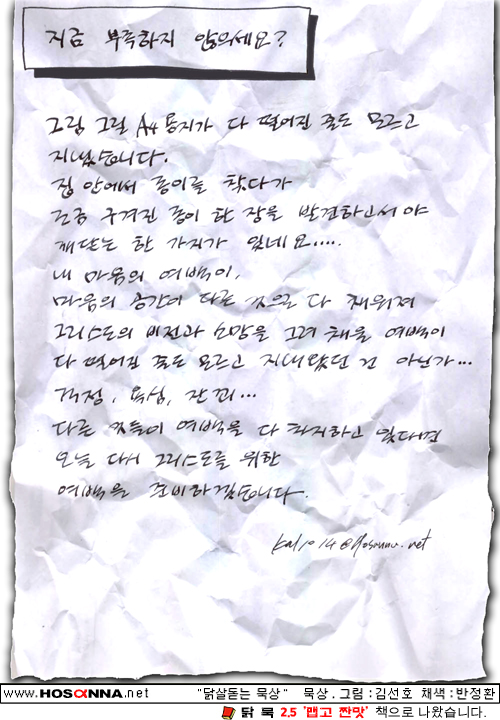 지금 부족하지 않으세요?
그림 그릴 A4 용지가 다 떨어진 줄도 모르고
지냈습니다.
집 안에서 종이를 찾다가
조금 구겨진 종이 한 장을 발견하고서야
깨닫는 한 가지가 있네요.....
내 마음의 여백이,
마음의 공간이 다른 것으로 다 채워져
그리스도의 비전과 소망을 그려 채울 여백이
다 떨어진 줄도 모르고 지내왔던 건 아닌가...
걱정, 욕심, 잔꾀...
다른 것들이 여백을 다 차지하고 있다면
오늘 다시 그리스도를 위한
여백을 준비하겠습니다.
kal1014@hosanna.net
www.HOSANNA.net "닭살돋는 묵상" 묵상.그림:김선호 채색:반정환
닭 묵 2.5 '맵고 짠맛' 책으로 나왔습니다.